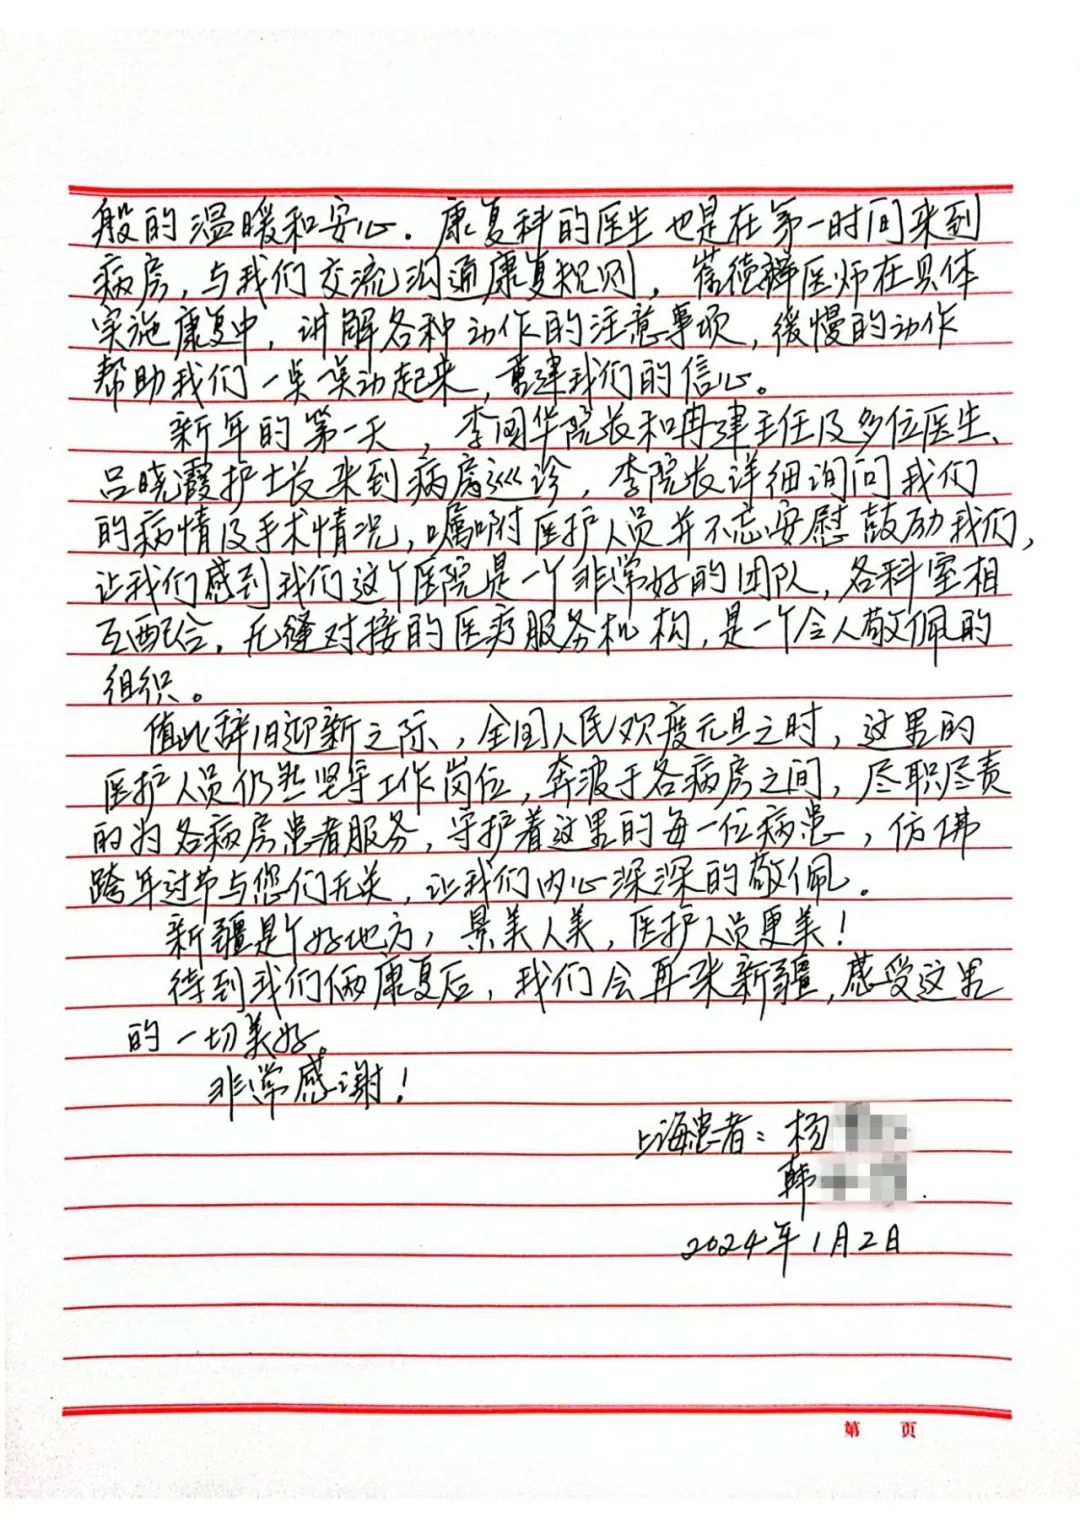 般的温暖和安心. 康复科的医生也是在第一时间来到
病房,与我们交流沟通康复规则,德辉医师在具体
实施康复中,讲解各种动作的注意事项,缓慢的动作
帮助我们一点点动起来,重建我们的信心。
新年的第一天,李国华院长和冉建主任及多位医生、
吕晓霞护士长来到病房巡诊,李院长详细询问我们
的病情及手术情况,嘱咐医护人员并不忘安慰鼓励我们,
让我们感到我们这个医院是一个非常好的团队,各科室相
互配合,无缝对接的医疗服务机构,是一个令人敬佩的
组织。
值此辞旧迎新之际、,全国人民欢度元旦之时,这里的
医护人员仍然坚守工作岗位,奔波于各病房之间,尽职尽责
的为各病房患者服务,守护着这里的每一位病患,仿佛
跨年过节与您们无关,让我们内心深深的敬佩。
新疆是个好地方,景美人美,医护人员更美!
待到我们俩康复后,我们会再来新疆,感受这里
的一切美好。
非常感谢!
上海患者:杨
韩
2024年1月2日
第 页